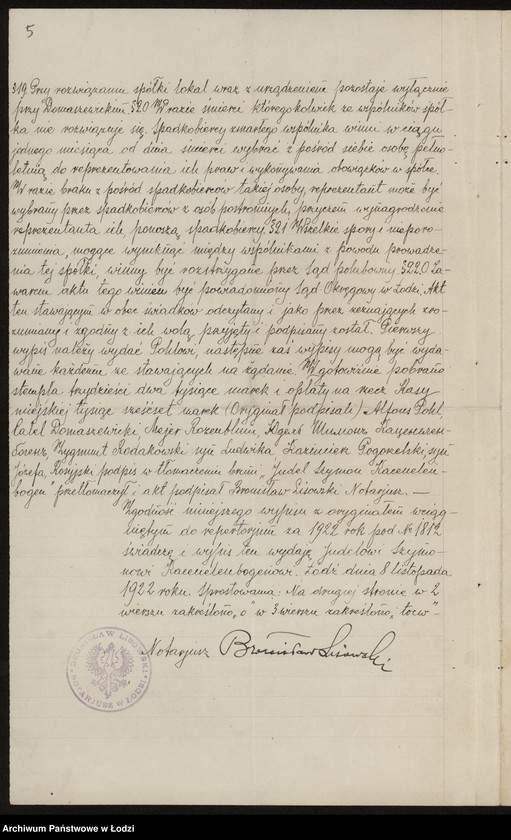 5
§19 Przy rozwiązaniu spółki lokal wraz z urządzeniem pozostaje wyłącznie
przy Domaszewickim §20 W razie śmierci któregokolwiek ze wspólników spół-
ka nie rozwiązuje się. Spadkobiercy zmarłego wspólnika winni w ciągu
jednego miesiąca od dnia śmierci wybrać z pośród siebie osobę pełno-
letnią do reprezentowania ich praw i wykonywania obowiązków w spółce.
W razie braku z pośród spadkobierców takiej osoby, reprezentant może być
wybrany przez spadkobierców z osób postronnych, przyczem wynagrodzenie
reprezentanta ich ponoszą spadkobiercy §21 Wszelkie spory i nieporo-
zumienia, mogące wyniknąć między wspólnikami z powodu prowadze-
nia tej spółki, winny być rozstrzygane przez sąd polubowny §22 O za-
warciu aktu tego winien być powiadomiony Sąd Okręgowy w Łodzi. Akt
ten stawającym w obec świadków odczytany i jako przez zeznających zro-
zumiany i zgodny z ich wolą, przyjęty i podpisany został. Pierwszy
wypis należy wydać Pohlowi, następne zaś wypisy mogą być wyda-
wane każdemu ze stawających na żądanie. W gotowiźnie pobrano
stempla trzydzieści dwa tysiące marek i opłaty na rzecz Kasy
miejskiej tysiąc sześćset marek (Oryginał podpisali:) Alfons Pohl,
Calel Domaszewicki, Mejer Rozenblum, Шимонъ Каценелен-
богенъ, Zygmunt Rodakowski syn Ludwika, Kazimierz Pogorelski, syn
Józefa, Rosyjski podpis w tłomaczeniu brzmi „Judel Szymon Kacenelen-
bogen" przetłomaczył i akt podpisał Bronisław Lisowski Notarjusz. —
Zgodność niniejszego wypisu z oryginałem wcią-
gniętym do repertorjum za 1922 rok pod № 1812
świadczę i wypis ten wydaję Judelowi Szymo-
nowi Kacenelenbogenowi. Łódź dnia 8 listopada
1922 roku. Sprostowania: Na drugiej stronie w 2
wierszu zakreślono „o" w 3 wierszu zakreślono „
Notarjusz Bronisław Lisowski
BRONISŁAW LISOWSKI
NOTARJUSZ W ŁODZI
Archiwum Państwowe w Łodzi